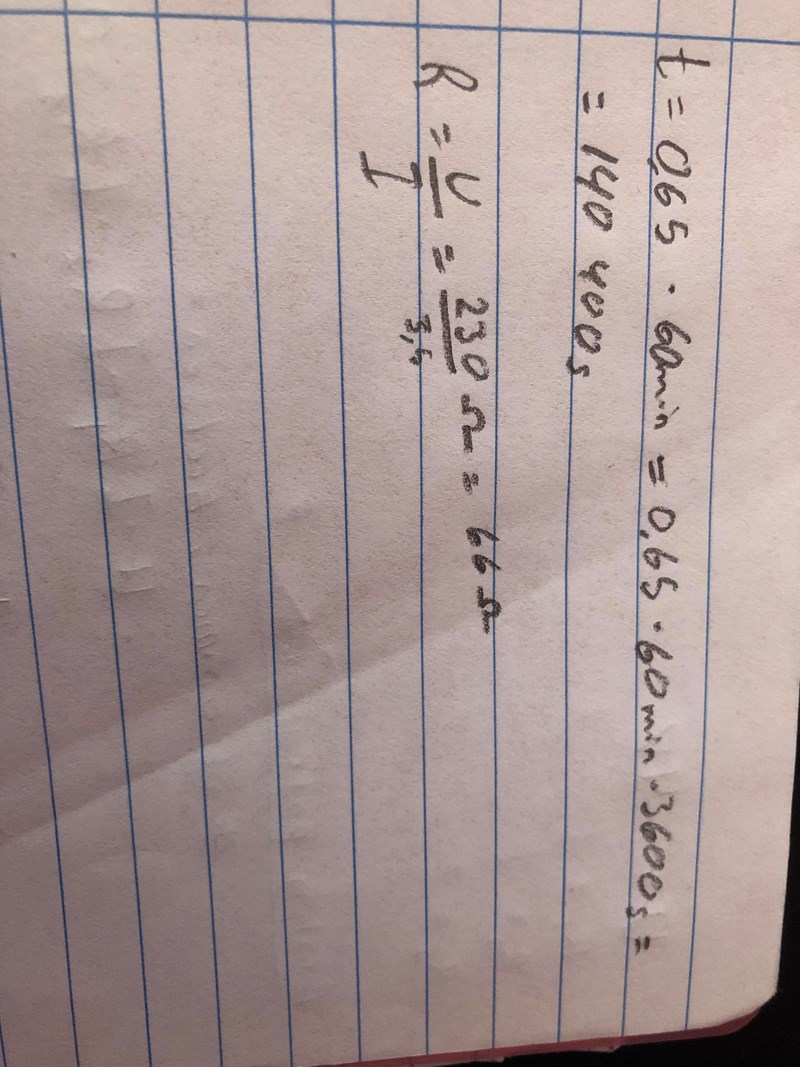 t = 0,65 · 60min = 0,65 · 60min · 3600s =
= 140 400s
R = U/I = 230/3,5 Ω = 66 Ω